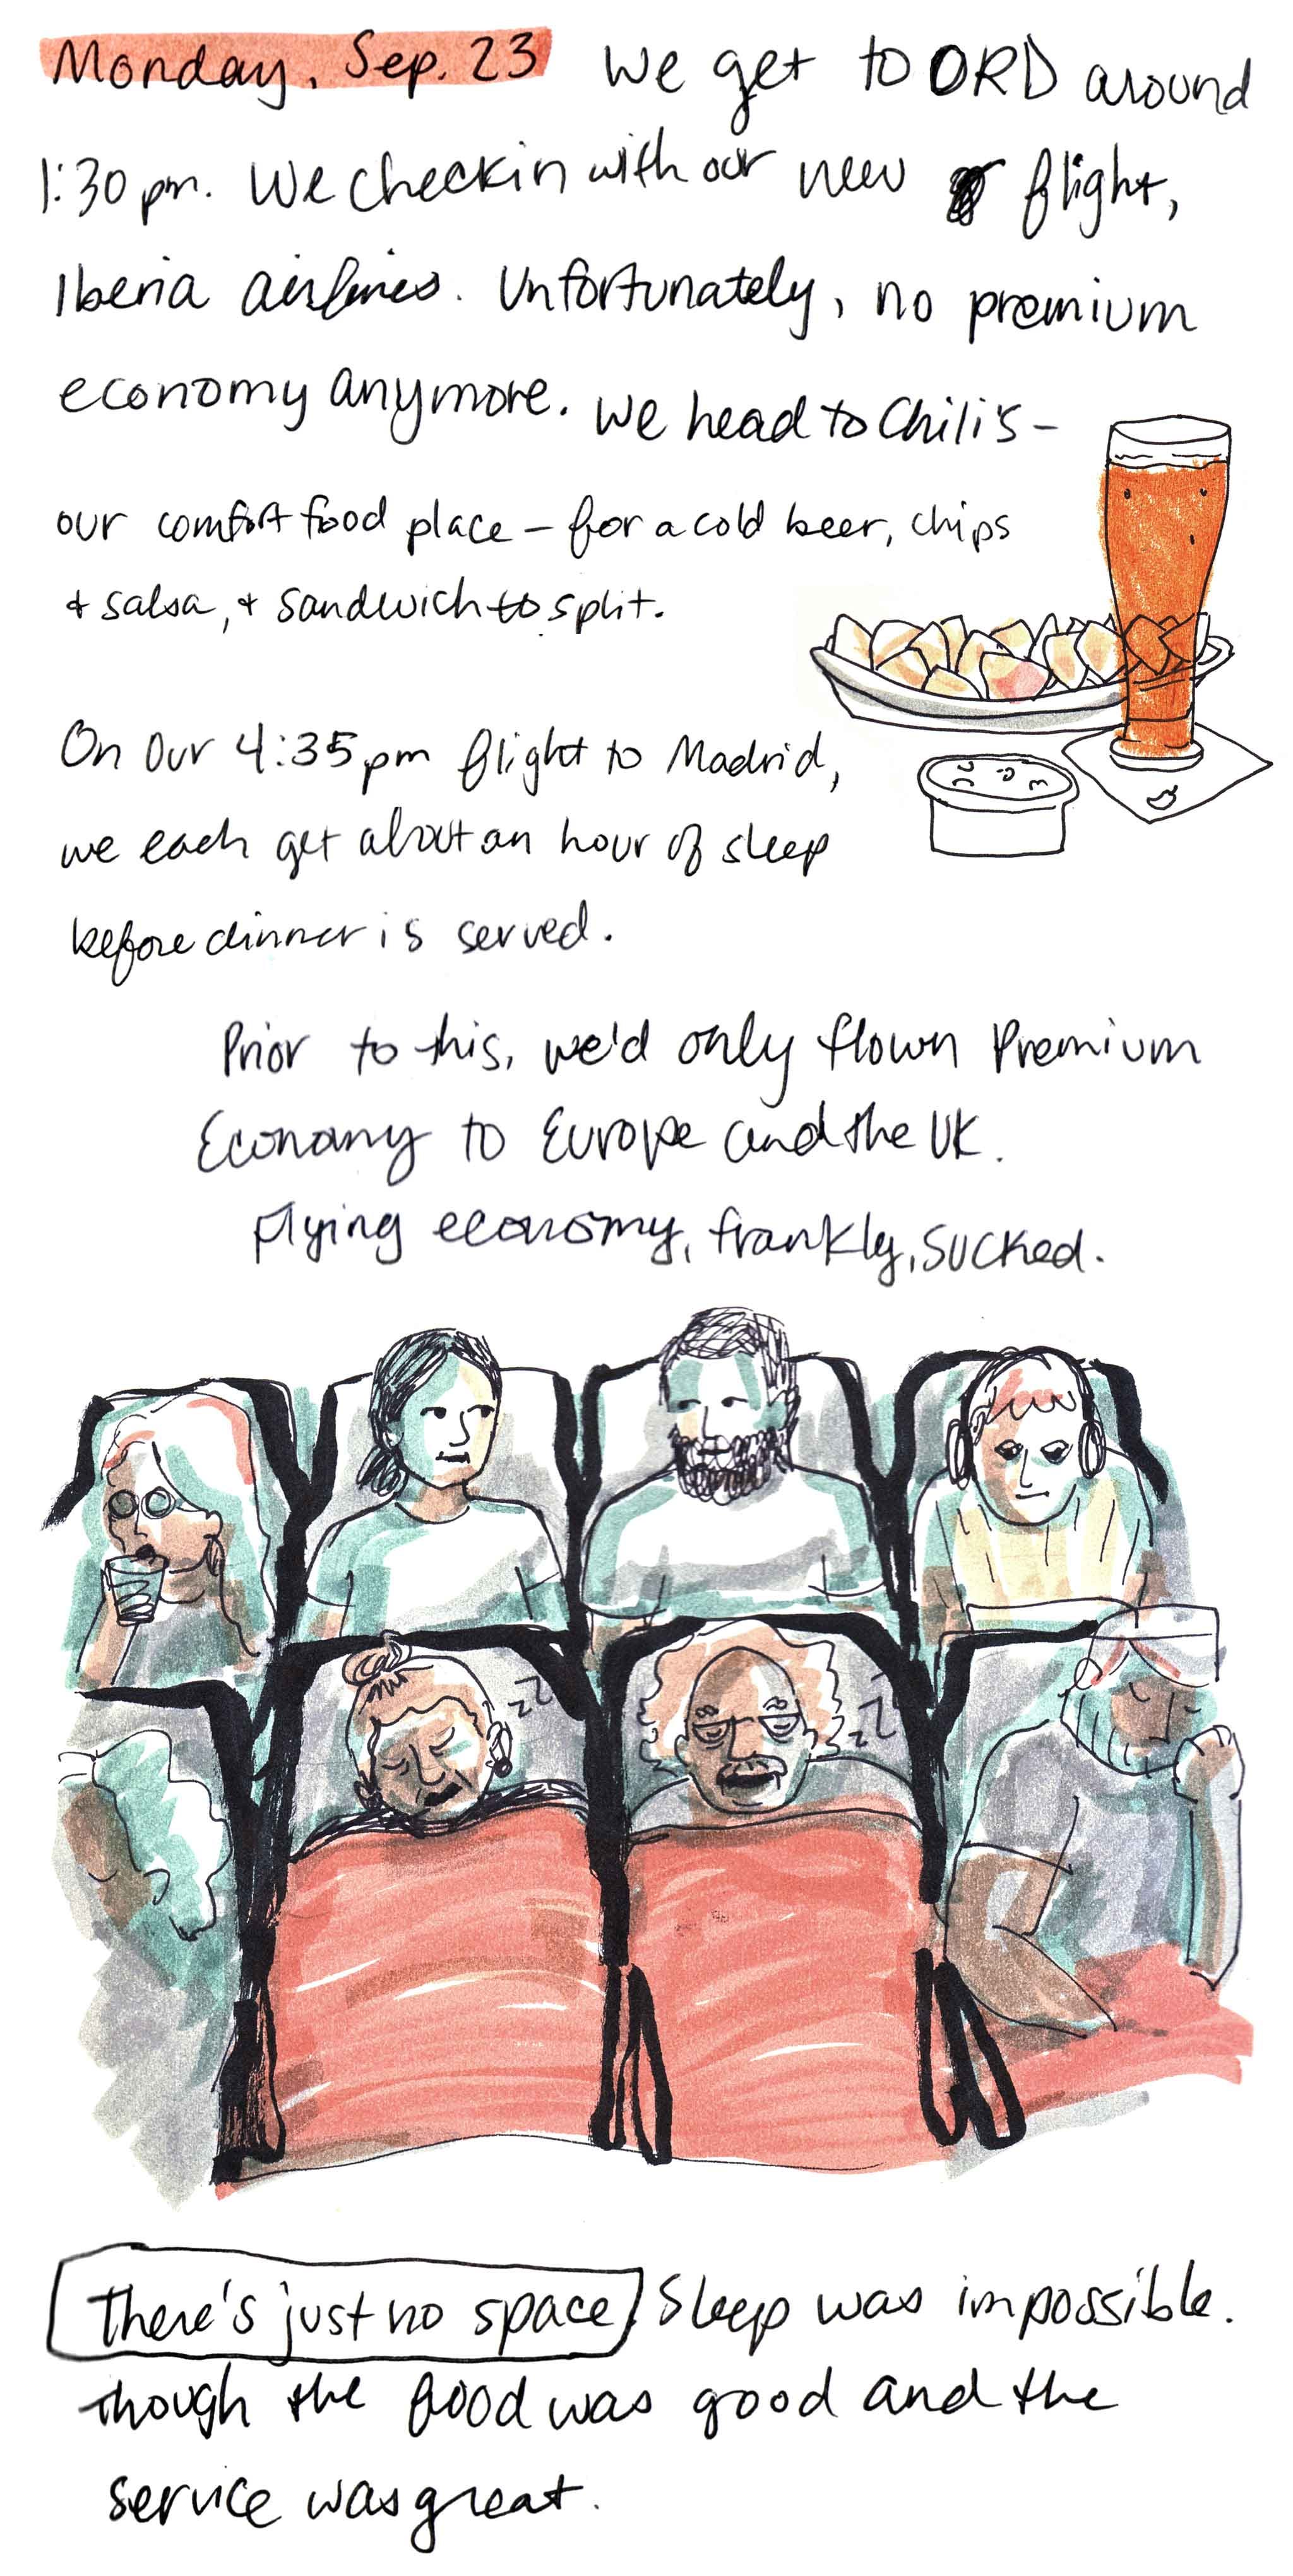 Monday, Sep. 23 We get to ORD around
1:30 pm. We checkin with our new flight,
Iberia airlines. Unfortunately, no premium
economy anymore. We head to Chili's -
our comfort food place - for a cold beer, chips
+ salsa, + sandwich to split.
On our 4:35 pm flight to Madrid,
we each get about an hour of sleep
before dinner is served.
Prior to this, we'd only flown Premium
Economy to Europe and the UK.
Flying economy, frankly, sucked.
zzz
zzz
There's just no space! Sleep was impossible.
Though the food was good and the
service was great.